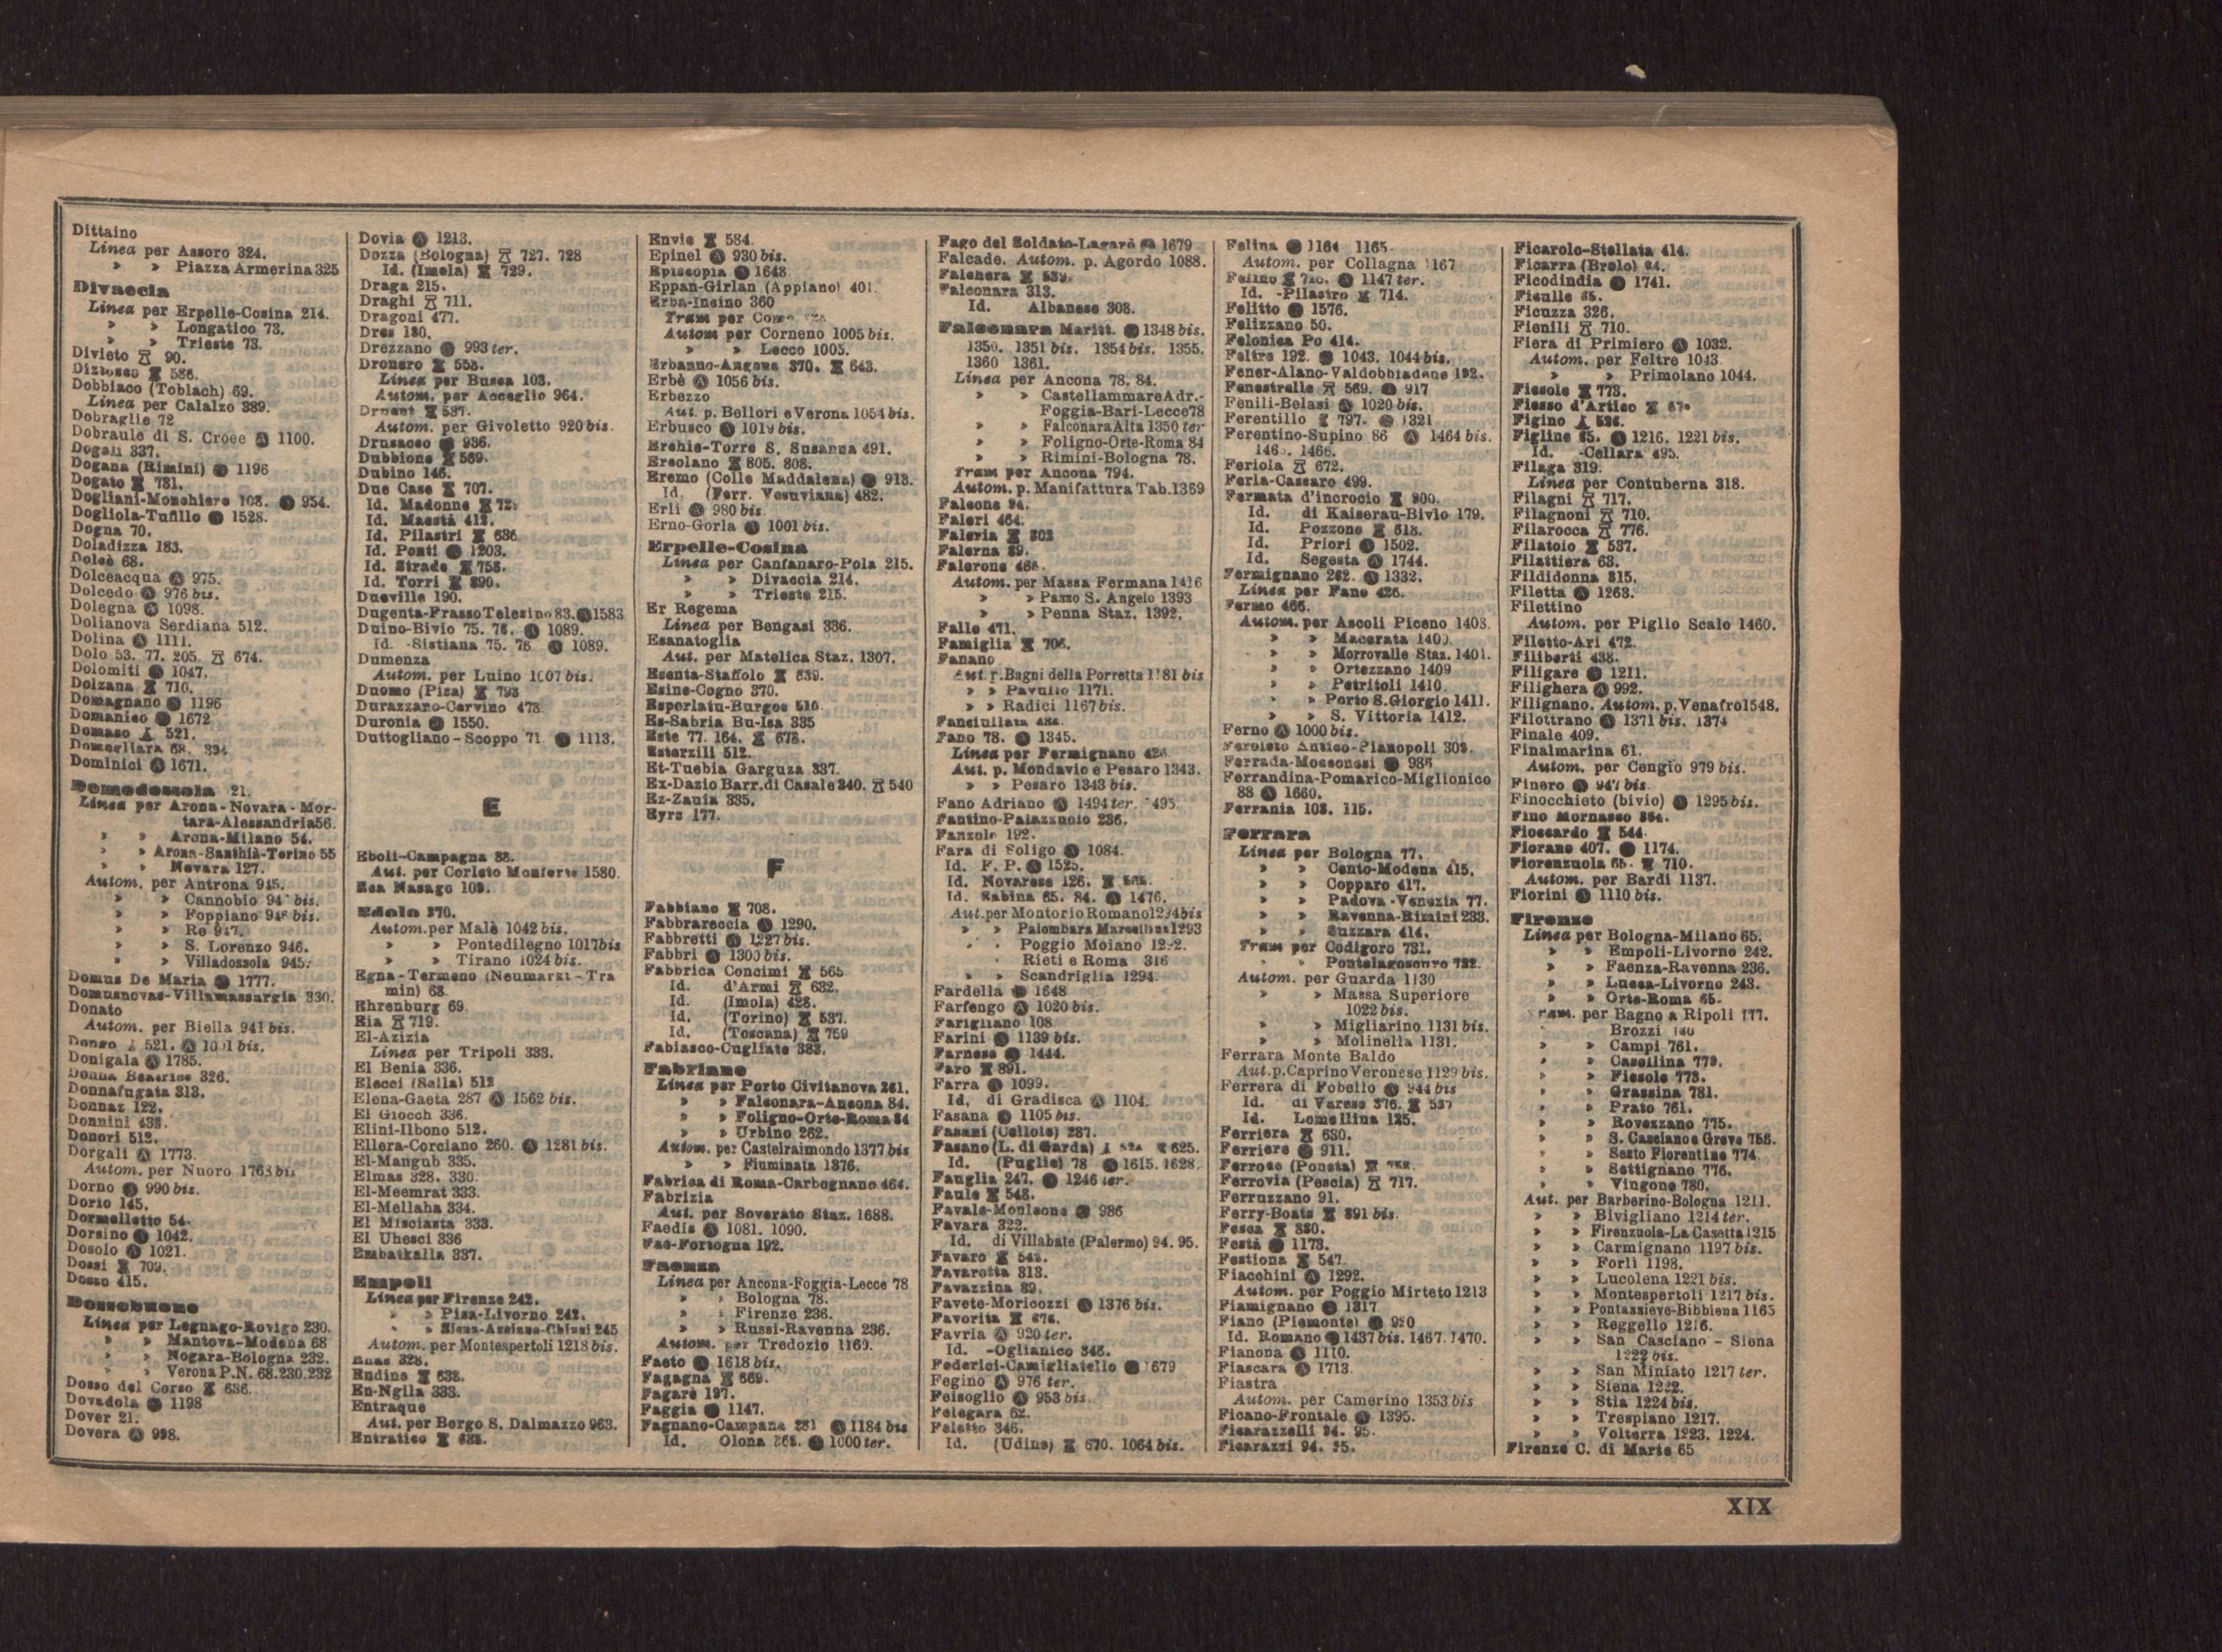 Dittaino
Linea per Assoro 324.
» » Piazza Armerina 325
Divaccia
Linea per Erpelle-Cosina 214.
» » Longatico 73.
» » Trieste 73.
Divieto 90.
586.
Dobbiaco (Toblach) 69.
Linea per Calalzo 389.
Dobraglie 72
Dobraule di S. Croce Ⓐ 1100.
Dogali 337.
Dogana (Rimini) Ⓐ 1196
Dogato 781.
Dogliani-Monchiero 108. Ⓐ 954.
Dogliola-Tufillo Ⓐ 1528.
Dogna 70.
Doladizza 183.
Dolcè 68.
Dolceacqua Ⓐ 975.
Dolcedo Ⓐ 976 bis.
Dolegna Ⓐ 1098.
Dolianova Serdiana 512.
Dolina Ⓐ 1111.
Dolo 53. 77. 205. 674.
Dolomiti Ⓐ 1047.
Dolzana 710.
Domagnano Ⓐ 1196
Domanico Ⓐ 1672
Domaso 521.
Domegliara 68.
Dominici Ⓐ 1671.
Domodossola 21.
Linea per Arona-Novara-Mor-
tara-Alessandria 56.
» » Arona-Milano 54.
» » Arona-Santhià-Torino 55
» » Novara 127.
Autom. per Antrona 945.
» » Cannobio bis.
» » Foppiano bis.
» » Re 947.
» » S. Lorenzo 946.
» » Villadossola 945.
Domus De Maria Ⓐ 1777.
Domusnovas-Villamassargia 330.
Donato
Autom. per Biella 941 bis.
Dongo 521. Ⓐ bis.
Donigala Ⓐ 1785.
Donna Beatrice 326.
Donnafugata 313.
Donnaz 122.
Donnini 433.
Donori 512.
Dorgali Ⓐ 1773.
Autom. per Nuoro 1763 bis
Dorno Ⓐ 990 bis.
Dorio 145.
Dormelletto 54.
Dorsino Ⓐ 1042.
Dosolo Ⓐ 1021.
Dossi 709.
Dosso 415.
Dossobuono
Linea per Legnago-Rovigo 230.
» » Mantova-Modena 68
» » Nogara-Bologna 232.
» » Verona P.N. 68.230.232
Dosso del Corso 636.
Dovadola Ⓐ 1198
Dover 21.
Dovera Ⓐ 998.
Dovia Ⓐ 1213.
Dozza (Bologna) 727. 728
Id. (Imola) 729.
Draga 215.
Draghi 711.
Dragoni 477.
Dres 180.
Drezzano Ⓐ 993 ter.
Dronero 553.
Linea per Busca 103.
Autom. per Acceglio 964.
Druent 537.
Autom. per Givoletto 920 bis.
Drusacco Ⓐ 936.
Dubbione 569.
Dubino 146.
Due Case 707.
Id. Madonne
Id. Maestà 412.
Id. Pilastri 636
Id. Ponti Ⓐ 1203.
Id. Strade 758.
Id. Torri 890.
Dueville 190.
Dugenta-Frasso Telesino 83. Ⓐ 1583
Duino-Bivio 75. 76. Ⓐ 1089.
Id. -Sistiana 75. 76 Ⓐ 1089.
Dumenza
Autom. per Luino 1007 bis.
Duomo (Pisa) 793
Durazzano-Cervino 473
Duronia Ⓐ 1550.
Duttogliano-Scoppo 71 Ⓐ 1113.
E
Eboli-Campagna 88.
Aut. per Corleto Monforte 1580.
Eca Nasago 109.
Edolo 370.
Autom. per Malè 1042 bis.
» » Pontedilegno 1017 bis
» » Tirano 1024 bis.
Egna-Termeno (Neumarkt-Tra
min) 68.
Ehrenburg 69.
Eia 719.
El-Azizia
Linea per Tripoli 333.
El Benia 336.
Elecci (Sella) 512
Elena-Gaeta 287 Ⓐ 1562 bis.
El Giocch 336.
Elini-Ilbono 512.
Ellera-Corciano 260. Ⓐ 1281 bis.
El-Mangub 335.
Elmas 328. 330.
El-Meemrat 333.
El-Mellaha 334.
El Misciasta 333.
El Uhesci 336
Embatkalla 337.
Empoli
Linea per Firenze 242.
» » Pisa-Livorno 242.
» » Siena-Asciano-Chiusi 245
Autom. per Montespertoli 1218 bis.
Enas 328.
Endine 638.
En-Ngila 333.
Entraque
Aut. per Borgo S. Dalmazzo 963.
Entratico
Envie 584.
Epinel Ⓐ 930 bis.
Episcopia Ⓐ 1648
Eppan-Girlan (Appiano) 401.
Erba-Incino 360
Tram per Como
Autom per Corneno 1005 bis.
» » Lecco 1005.
Erbanno-Angone 370. 643.
Erbè Ⓐ 1056 bis.
Erbezzo
Aut. p. Bellori e Verona 1054 bis.
Erbusco Ⓐ 1019 bis.
Erchie-Torre S. Susanna 491.
Ercolano 805. 808.
Eremo (Colle Maddalena) Ⓐ 913.
Id. (Ferr. Vesuviana) 482.
Erli Ⓐ 980 bis.
Erno-Gorla Ⓐ 1001 bis.
Erpelle-Cosina
Linea per Canfanaro-Pola 215.
» » Divaccia 214.
» » Trieste 215.
Er Regema
Linea per Bengasi 336.
Esanatoglia
Aut. per Matelica Staz. 1307.
Esenta-Staffolo 639.
Esine-Cogno 370.
Esporlatu-Burgos 510.
Es-Sabria Bu-Isa 335
Este 77. 164. 678.
Esterzili 512.
Et-Tuebia Garguza 337.
Ex-Dazio Barr. di Casale 340. 540
Ez-Zauia 335.
Eyrs 177.
F
Fabbiano 708.
Fabbrareccia Ⓐ 1290.
Fabbretti Ⓐ 1227 bis.
Fabbri Ⓐ 1300 bis.
Fabbrica Concimi 565
Id. d'Armi 632.
Id. (Imola) 428.
Id. (Torino) 537.
Id. (Toscana) 759
Fabiasco-Cugliate 383.
Fabriano
Linea per Porto Civitanova 261.
» » Falconara-Ancona 84.
» » Foligno-Orte-Roma 84
» » Urbino 262.
Autom. per Castelraimondo 1377 bis
» » Fiuminata 1376.
Fabrica di Roma-Carbognano 464.
Fabrizia
Aut. per Soverato Staz. 1688.
Faedis Ⓐ 1081. 1090.
Fae-Fortogna 192.
Faenza
Linea per Ancona-Foggia-Lecce 78
» » Bologna 78.
» » Firenze 236.
» » Russi-Ravenna 236.
Autom. per Tredozio 1160.
Faeto Ⓐ 1618 bis.
Fagagna 669.
Fagarè 197.
Faggia Ⓐ 1147.
Fagnano-Campana 281 Ⓐ 1184 bis
Id. Olona Ⓐ 1000 ter.
Fago del Soldato-Lagarò Ⓐ 1679
Falcade. Autom. p. Agordo 1088.
Falchera 539.
Falconara 313.
Id. Albanese 308.
Falconara Maritt. Ⓐ 1348 bis.
1350. 1351 bis. 1354 bis. 1355.
1360 1361.
Linea per Ancona 78. 84.
» » Castellammare Adr.-
Foggia-Bari-Lecce 78
» » Falconara Alta 1350 ter
» » Foligno-Orte-Roma 84
» » Rimini-Bologna 78.
Tram per Ancona 794.
Autom. p. Manifattura Tab. 1369
Falcone 94.
Faleri 464.
Faleria 803
Falerna 89.
Falerone 466.
Autom. per Massa Fermana 1416
» » Passo S. Angelo 1393
» » Penna Staz. 1392.
Fallo 471.
Famiglia 706.
Fanano
Aut. p. Bagni della Porretta 1181 bis
» » Pavullo 1171.
» » Radici 1167 bis.
Fanciullata
Fano 78. Ⓐ 1345.
Linea per Fermignano 426
Aut. p. Mondavio e Pesaro 1343.
» » Pesaro 1343 bis.
Fano Adriano Ⓐ 1494 ter. 1495.
Fantino-Palazzuolo 236.
Fanzolo 192.
Fara di Soligo Ⓐ 1084.
Id. F. P. Ⓐ 1525.
Id. Novarese 126.
Id. Sabina 65. 84. Ⓐ 1476.
Aut. per Montorio Romano 1294 bis
» » Palombara Marcellina 1293
» » Poggio Moiano
Rieti e Roma
» » Scandriglia 1294.
Fardella Ⓐ 1648
Farfengo Ⓐ 1020 bis.
Farigliano 108
Farini Ⓐ 1139 bis.
Farnese Ⓐ 1444.
Faro 891.
Farra Ⓐ 1099.
Id. di Gradisca Ⓐ 1104.
Fasana Ⓐ 1105 bis.
Fasani (Cellole) 287.
Fasano (L. di Garda) 625.
Id. (Puglie) 78 Ⓐ 1615. 1628.
Fauglia 247. Ⓐ 1246 ter.
Faule 548.
Favale-Monleone Ⓐ 986
Favara 322.
Id. di Villabate (Palermo) 94. 95.
Favaro 542.
Favarotta 313.
Favazzina 89.
Favete-Moricozzi Ⓐ 1376 bis.
Favorita 674.
Favria Ⓐ 920 ter.
Id. -Oglianico 346.
Federici-Camigliatello Ⓐ 1679
Fegino Ⓐ 976 ter.
Feisoglio Ⓐ 953 bis
Felegara 62.
Feletto 346.
Id. (Udine) 670. 1064 bis.
Felina Ⓐ 1164 1165
Autom. per Collagna 1167
Felino Ⓐ 1147 ter.
Id. -Pilastro 714.
Felitto Ⓐ 1576.
Felizzano 50.
Felonica Po 414.
Feltre 192. Ⓐ 1043. 1044 bis.
Fener-Alano-Valdobbiadene 192.
Fenestrelle 569. Ⓐ 917
Fenili-Belasi Ⓐ 1020 bis.
Ferentillo 797. Ⓐ 1321
Ferentino-Supino 86 Ⓐ 1464 bis.
1466.
Feriola 672.
Ferla-Cassaro 499.
Fermata d'incrocio 900.
Id. di Kaiserau-Bivio 179.
Id. Pozzone 618.
Id. Priori Ⓐ 1502.
Id. Segesta Ⓐ 1744.
Fermignano 262. Ⓐ 1332.
Linea per Fano 426.
Fermo 466.
Autom. per Ascoli Piceno 1408.
» » Macerata 1400.
» » Morrovalle Staz. 1401.
» » Ortezzano 1409
» » Petritoli 1410
» » Porto S. Giorgio 1411.
» » S. Vittoria 1412.
Ferno Ⓐ 1000 bis.
Feroleto Antico-Pianopoli 309.
Ferrada-Moconesi Ⓐ 986
Ferrandina-Pomarico-Miglionico
88 Ⓐ 1660.
Ferrania 108. 115.
Ferrara
Linea per Bologna 77.
» » Cento-Modena 415.
» » Copparo 417.
» » Padova-Venezia 77.
» » Ravenna-Rimini 233.
» » Suzzara 414.
Tram per Codigoro 731.
» » Pontelagoscuro 732.
Autom. per Guarda 1130
» » Massa Superiore
1022 bis.
» » Migliarino 1131 bis.
» » Molinella 1131.
Ferrara Monte Baldo
Aut. p. Caprino Veronese 1129 bis.
Ferrera di Fobello Ⓐ 944 bis
Id. di Varese 376. 537
Id. Lomellina 125.
Ferriera 630.
Ferriere Ⓐ 911.
Ferrone (Poneta)
Ferrovia (Pescia) 717.
Ferruzzano 91.
Ferry-Boats 891 bis.
Fesca 880.
Festà Ⓐ 1173.
Festiona 547.
Fiacchini Ⓐ 1292.
Autom. per Poggio Mirteto 1213
Fiamignano Ⓐ 1317
Fiano (Piemonte) Ⓐ 920
Id. Romano Ⓐ 1437 bis. 1467. 1470.
Fianona Ⓐ 1110.
Fiascara Ⓐ 1713.
Fiastra
Autom. per Camerino 1353 bis
Ficano-Frontale Ⓐ 1395.
Ficarazzelli 94. 95.
Ficarazzi 94. 95.
Ficarolo-Stellata 414.
Ficarra (Brolo) 94.
Ficodindia Ⓐ 1741.
Ficulle 65.
Ficuzza 326.
Fienili 710.
Fiera di Primiero Ⓐ 1032.
Autom. per Feltre 1043.
» » Primolano 1044.
Fiesole 773.
Fiesso d'Artico
Figino 536.
Figline 65. Ⓐ 1216. 1221 bis.
Id. -Cellara 495.
Filaga 319.
Linea per Contuberna 318.
Filagni 717.
Filagnoni 710.
Filarocca 776.
Filatoio 537.
Filattiera 63.
Fildidonna 315.
Filetta Ⓐ 1263.
Filettino
Autom. per Piglio Scalo 1460.
Filetto-Ari 472.
Filiberti 438.
Filigare Ⓐ 1211.
Filighera Ⓐ 992.
Filignano. Autom. p. Venafro 1548.
Filottrano Ⓐ 1371 bis. 1374
Finale 409.
Finalmarina 61.
Autom. per Cengio 979 bis.
Finero Ⓐ 947 bis
Finocchieto (bivio) Ⓐ 1295 bis.
Fino Mornasco 364.
Fioccardo 544.
Fiorano 407. Ⓐ 1174.
Fiorenzuola 65. 710.
Autom. per Bardi 1137.
Fiorini Ⓐ 1110 bis.
Firenze
Linea per Bologna-Milano 65.
» » Empoli-Livorno 242.
» » Faenza-Ravenna 236.
» » Lucca-Livorno 243.
» » Orte-Roma 65.
Tram. per Bagno a Ripoli 777.
Brozzi
» » Campi 761.
» » Casellina 779.
» » Fiesole 773.
» » Grassina 781.
» » Prato 761.
» » Rovezzano 775.
» » S. Casciano e Greve 758.
» » Sesto Fiorentino 774
» » Settignano 776.
» » Vingone 780.
Aut. per Barberino-Bologna 1211.
» » Bivigliano 1214 ter.
» » Firenzuola-La Casetta 1215
» » Carmignano 1197 bis.
» » Forlì 1198.
» » Lucolena 1221 bis.
» » Montespertoli 1217 bis.
» » Pontassieve-Bibbiena 1165
» » Reggello 1216.
» » San Casciano - Siena
1222 bis.
» » San Miniato 1217 ter.
» » Siena 1222.
» » Stia 1224 bis.
» » Trespiano 1217.
» » Volterra 1223. 1224.
Firenze C. di Marte 65
XIX